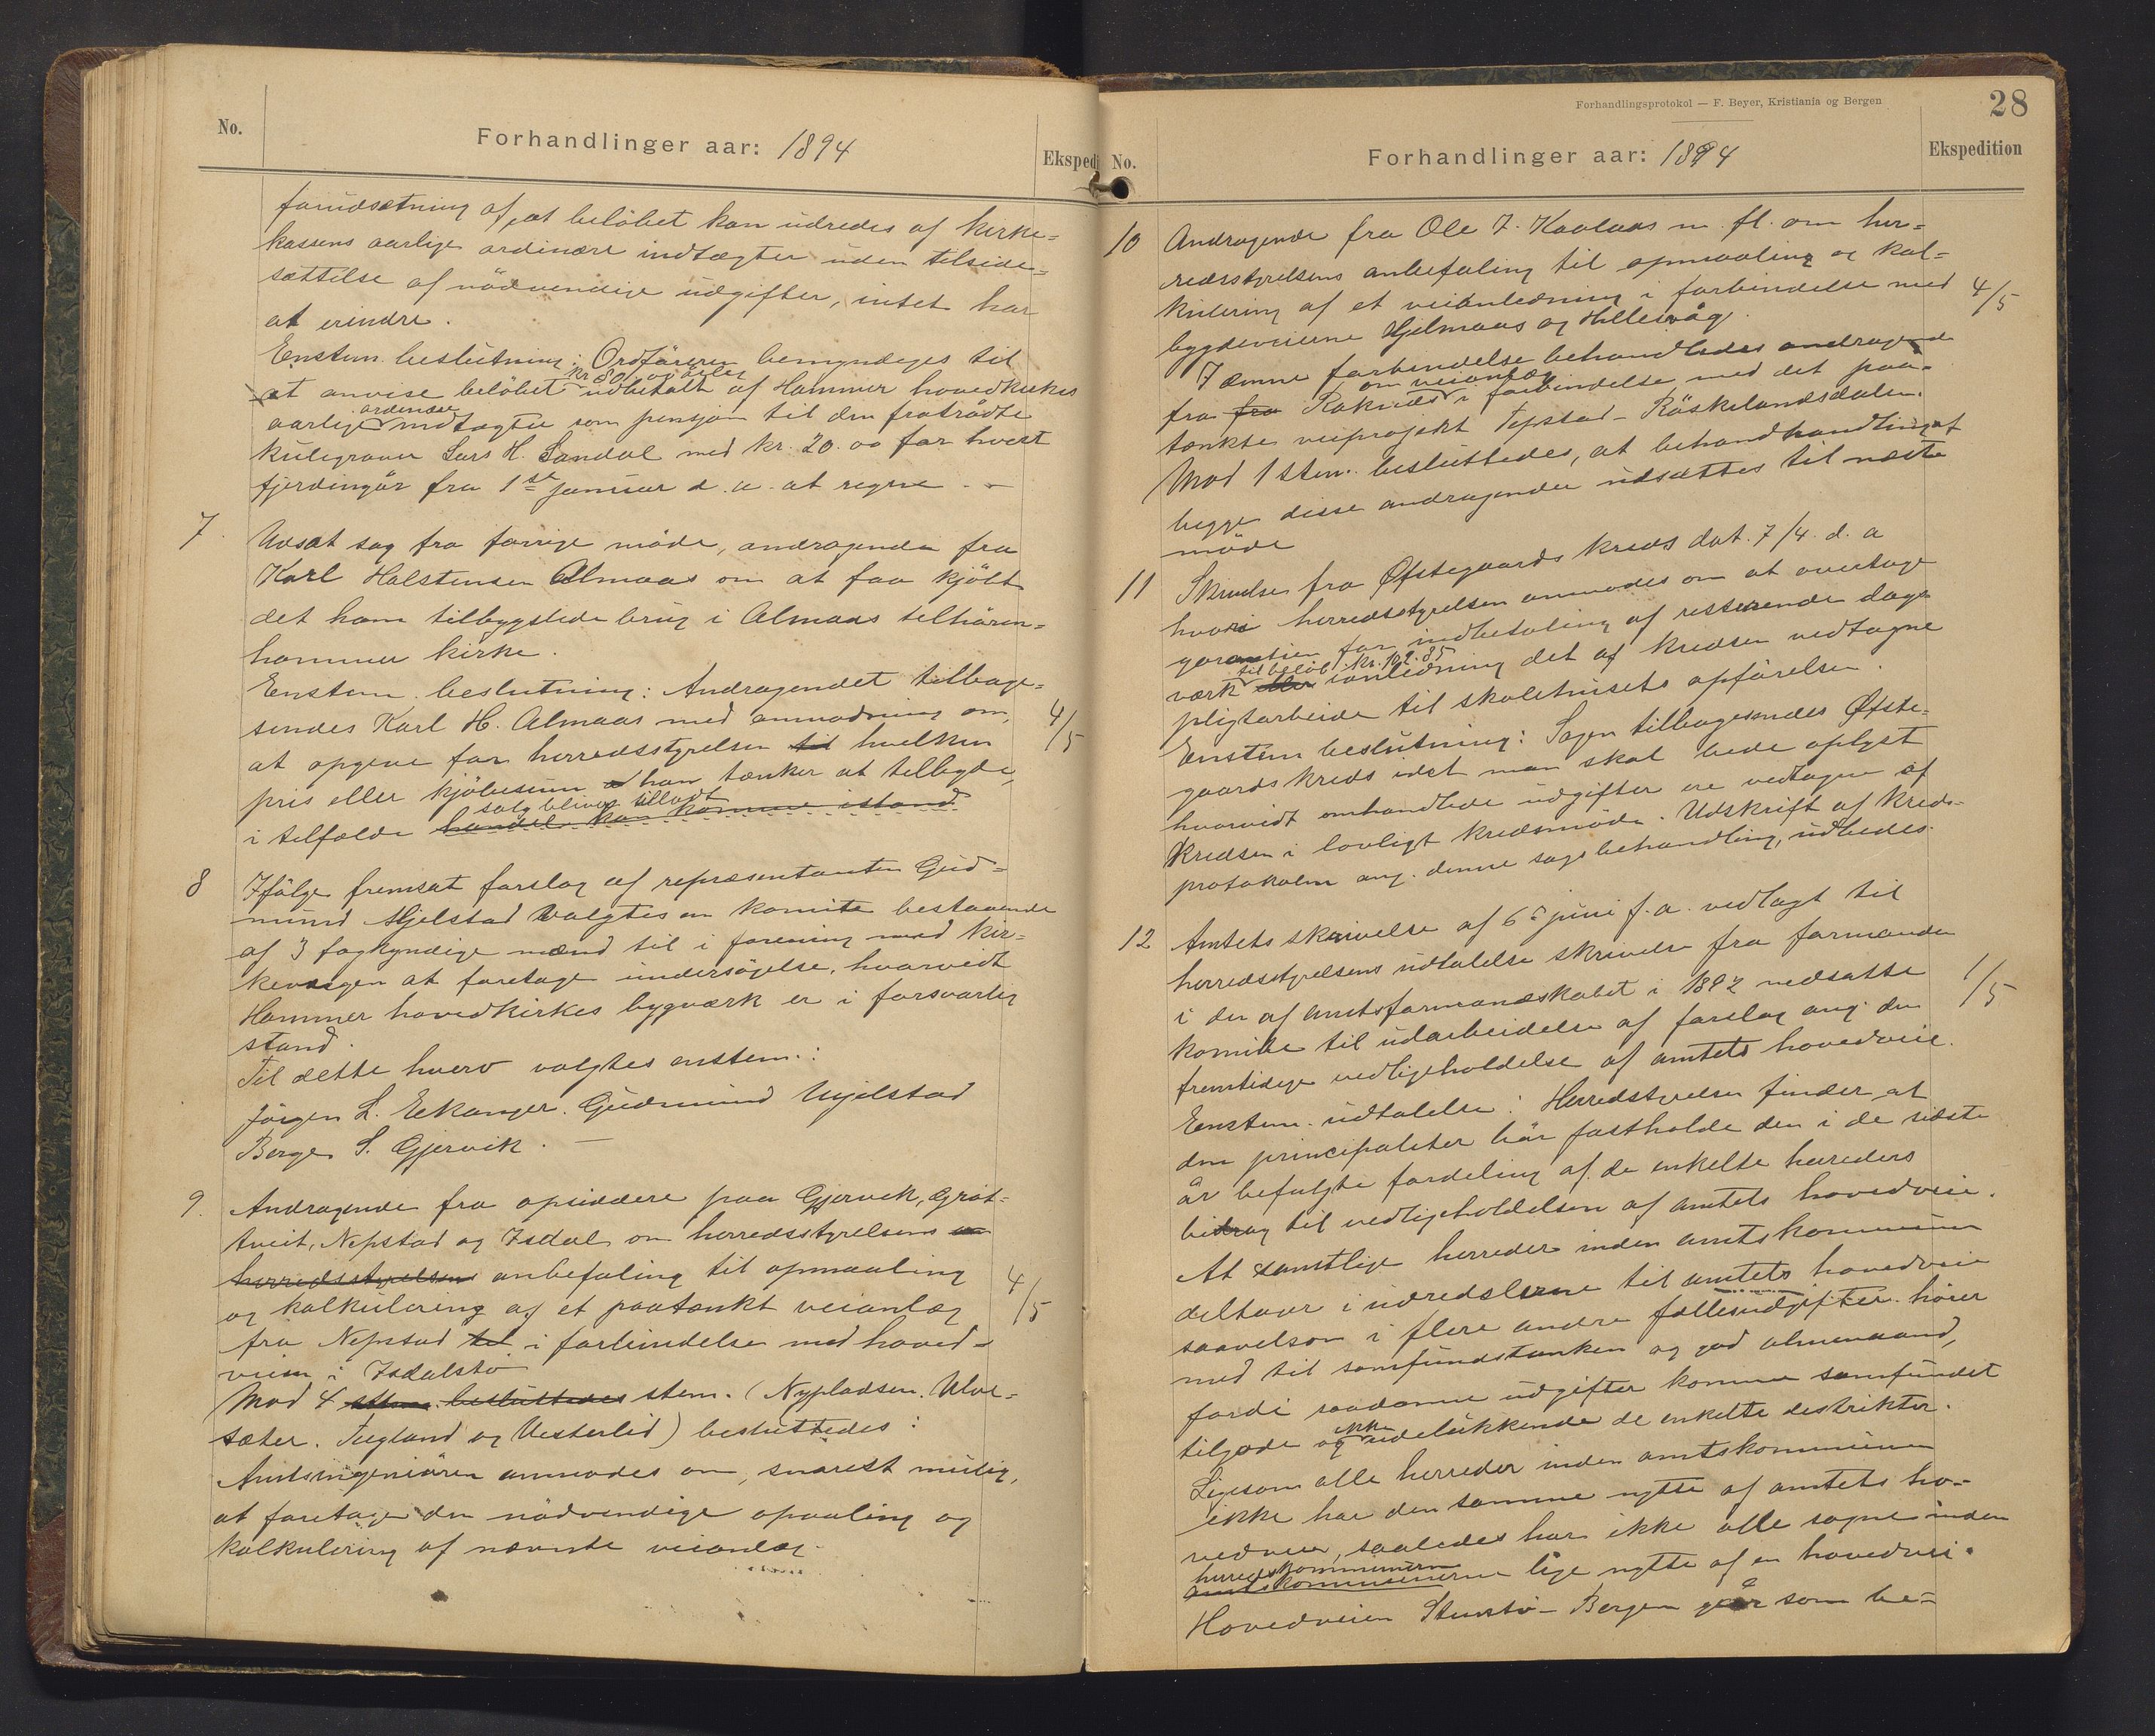 No.
Forhandlinger aar: 1894
Eksped
forudsætning af, at beløbet kan udredes af kirke=
kassens aarlige ordinære indtægter uden tilside=
sættelse af nödvendige udgifter, intet har
at erindre.
Enstem. beslutning: Ordföreren bemyndiges til
kr 80,00 årlig
at anvise beløbet udbetalt af Hammer hovedkirkes
ordinære
aarlige indtægter som pensjon til den fratrådte
kulegraver Lars H. Sandal med kr. 20.00 for hvert
fjerdingår fra 1ste januar d. a. at regne. -
7. Udsat sag fra forrige möde, andragende fra
Karl Halstensen Almaas om at faa kjöbt
det ham tilbygslede brug i Almaas tilhören=
hammer kirke.
Enstem. beslutning: Andragendet tilbage=
sendes Karl H. Almaas med anmodning om,
4/5
at opgive for herredsstyrelsen til hvilken
pris eller kjöbesum han tænker at tilbyde,
salg bliver tilladt
i tilfælde handel kan komme istand.
8 Ifölge fremsat forslag af repræsentanten Gud=
mund Mjelstad valgtes en komite bestaaende
af 3 fagkyndige mænd til i forening med kir=
kevægen at foretage undersögelse, hvorvidt
Hammer hovedkirkes bygværk er i forsvarlig
stand.
Til dette hverv valgtes enstem.:
Jörgen L. Eekanger. Gudmund Mjelstad
Berge S. Gjervik. —
9. Andragende fra opsiddere paa Gjervik, Grøt=
tveit, Nepstad og Isdal om herredsstyrelsens om
herredsstyrelsens anbefaling til opmaaling
4/5
og kalkulering af et paatænkt veianlæg
fra Nepstad til i forbindelse med hoved=
veien i Isdalstø
Mod 4 stem. besluttedes stem. (Nypladsen. Ulve=
sæter. Tugland og Vesterlid) besluttedes:
Amtsingeniören anmodes om, snarest mulig,
at foretage den nödvendige opaaling og
kalkulering af nævnte veianlæg.
Forhandlingsprotokol — F. Beyer, Kristiania og Bergen
28
No.
Forhandlinger aar: 1894
Ekspedition
10 Andragende fra Ole J. Kaalaas m. fl. om her=
redsstyrelsens anbefaling til opmaaling og kal=
kulering af et veianledning i forbindelse med
4/5
bygdeveiene Hjelmaas og Hillesvåg.
I denne forbindelse behandledes andragende
om veianlæg
fra fra Raknes i forbindelse med det paa=
tænkte veiprojekt Tepstad - Röskelandsdalen.
Mod 1 stem. besluttedes, at behandhandling af
begge disse andragender udsættes til næste
möde
11 Skrivelse fra Øfstegaards kreds dat. 7/4. d. a
hvori herredsstyrelsen anmodes om at overtage
garantien for indbetaling af resterende dags
til beløb kr. 102.85
værk ianledning det af kredsen vedtagne
pligtarbeide til skolehusets opförelse.
Enstem beslutning: Sagen tilbagesendes Øfste=
gaards kreds idet man skal bede oplyst
hvorvidt omhandlede udgifter ere vedtagne af
Kredsen i lovligt kredsmöde. Udskrift af kreds=
protokolen ang. denne sags behandling, udbedes.
12 Amtets skrivelse af 6te juni f. a. vedlagt til
herredsstyrelsens udtalelse skrivelse fra formanden
1/5
i den af amtsformandskabet i 1892 nedsatte
komite til udarbeidelse af forslag ang. den
fremtidige vedligeholdelse af amtets hovedveie.
Enstem. udtalelse: Herredstyrelsen finder, at
den principaliter bör fastholde den i de sidste
år befulgte fordeling af de enkelte herreders
bidrag til vedligeholdelsen af amtets hovedveie.
At samtlige herreder inden amtskommunen
deltaar i udredslerne til amtets hovedveie
saavelsom i flere andre fællesudgifter hörer
med til samfundstanken og god almenaand,
fordi saadanne udgifter komme samfundet
ikke
tilgode og udelukkende de enkelte distrikter.
Ligesom alle herreder inden amtskommunen
ikke har den samme nytte af amtets ho=
vedveie, saaledes har ikke alle sogne inden
herredskommunerne
amtskommunerne lige nytte af en hovedvei.
Hovedveien Stusstø - Bergen går som be=